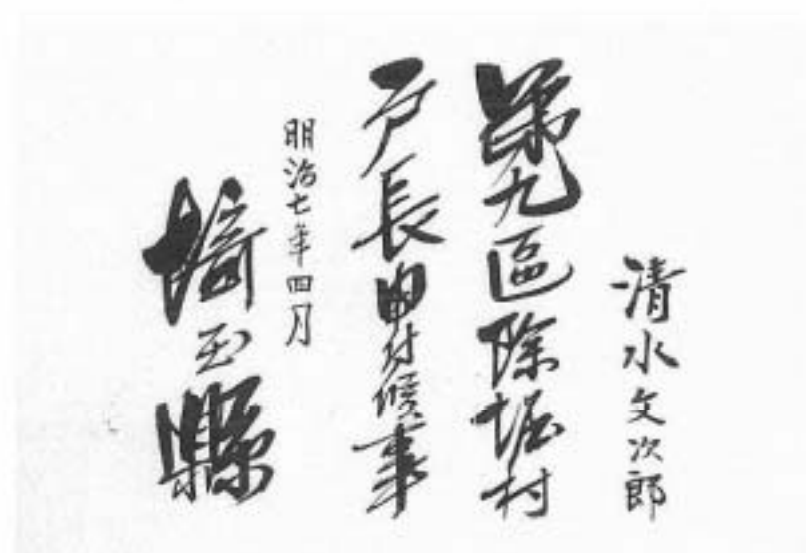 清水文次郎
第九區除堀村
戸長申付候事
明治七年四月
埼玉縣